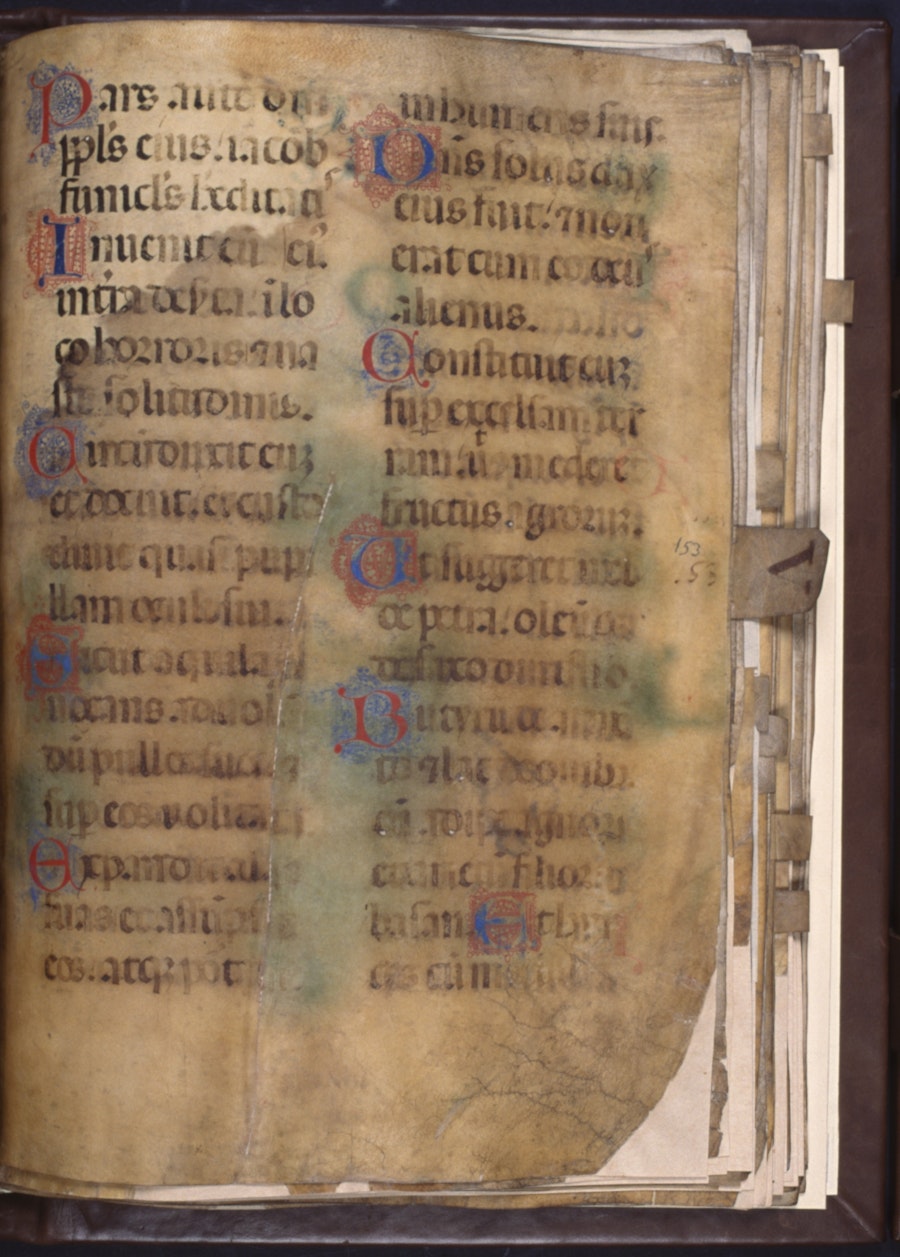 Pars aute dni
ppls eius. iacob
funicls hrditati
Inuenit eu
in tra deserta. i lo
co horroris ⁊ ua
ste solitudinis.
Circuduxit euʒ
et docuit. et custo
diuit quasi pupi
llam oculi sui.
Sicut aquila
uocans ad uola
du pullos suos
sup eos uolitas
Expandit alas
suas et assupsit
eos. atqʒ portauit
in humeris suis.
Dns solus dux
eius fuit. ⁊ non
erat cum eo deus
alienus.
Constituit euʒ
sup excelsam ter
ram. ut comederet
fructus agroruʒ.
Ut suggeret mel
de petra. oleuqʒ
de saxo durissimo
Butyru de arme
to ⁊ lac de ouibʒ
cu adipe agnoruʒ
et arietu filioruʒ
basan Et hir
cos cu medulla
153
.53
A